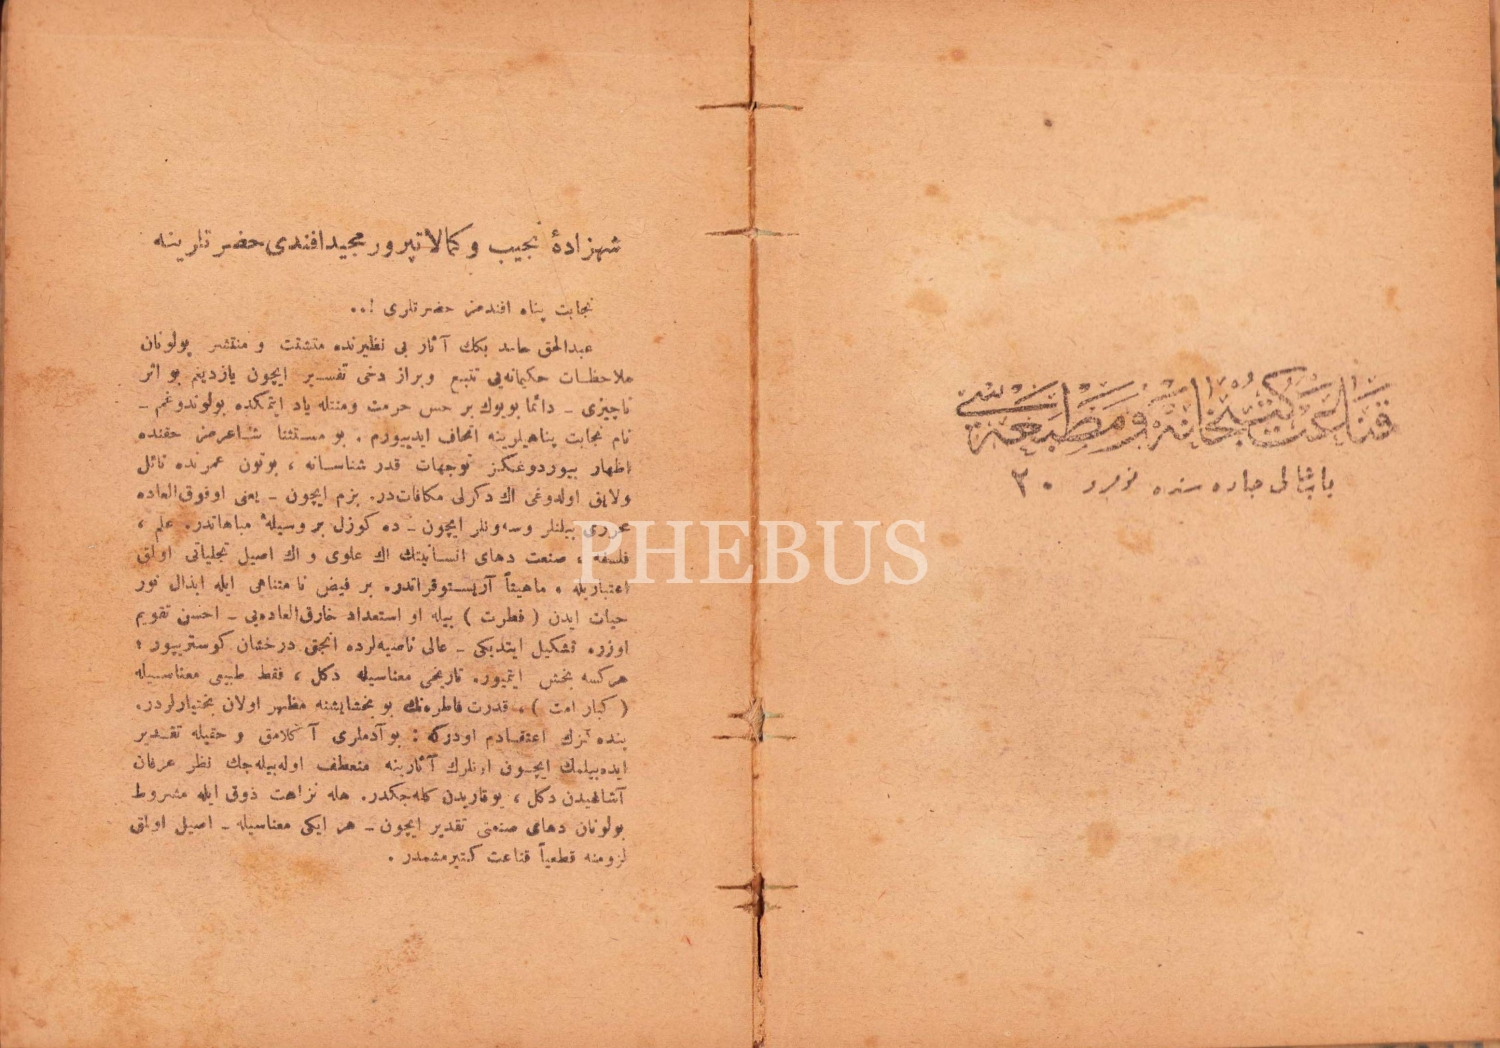 قناعت كتبخانه و مطبعه سی
باب عالی جاده سنده نومرو ٢٠
شهزادهٔ نجیب و كمالاتپرور مجید افندی حضرتلرینه
نجابت پناه افندمز حضرتلری !..
عبدالحق حامد بكك آثار بی نظیرنده متشتت و منتشر بولونان
ملاحظات حكیمانه‌یی تتبع و براز دخی تفسیر ایچون یازدیغم بو اثر
ناچیزی ـ دائما بویوك بر حس حرمت ومنتله یاد ایتمكده بولوندوغم ـ
نام نجابت پناهیلرینه اتحاف ایدییورم . بو مستثنا شاعرمز حقنده
اظهار بیوردوغكز توجهات قدر شناسانه ، بوتون عمرنده نائل
ولایق اولدوغی اك دكرلی مكافات‌در. بزم ایچون ـ یعنی اوفوق‌العاده
محرری بیلنلر وسه‌ونلر ایچون ـ ده كوزل بر وسیلهٔ مباهاتدر. علم ،
فلسفه ، صنعت دهای انسانیتك اك علوی و اك اصیل تجلیاتی اولمق
اعتباریله ، ماهیتاً آریستوقراتدر. بر فیض نامتناهی ایله ابذال نور
حیات ایدن ( فطرت ) بیله او استعداد خارق‌العاده‌یی ـ احسن تقویم
اوزره تشكیل ایتدیكی ـ عالی ناصیه‌لرده آنجق درخشان كوسترییور ؛
هركسه بخش ایتمیور. تاریخی معناسیله دكل ، فقط طبیعی معناسیله
( كبار امت ) ، قدرت فاطره‌نك بو بخشایشنه مظهر اولان بختیارلردر.
بنده‌كزك اعتقادم اودركه : بوآدملری آكلامق و حقیله تقدیر
ایده‌بیلمك ایچون اونلرك آثارینه منعطف اوله‌بیله‌جك نظر عرفان
آشاغیدن دكل ، یوقاریدن كله‌جكدر. هله نزاهت ذوق ایله مشروط
بولونان دهای صنعتی تقدیر ایچون ـ هر ایكی معناسیله ـ اصیل اولمق
لزومنه قطعیاً قناعت كتیرمشمدر .
PHEBUS